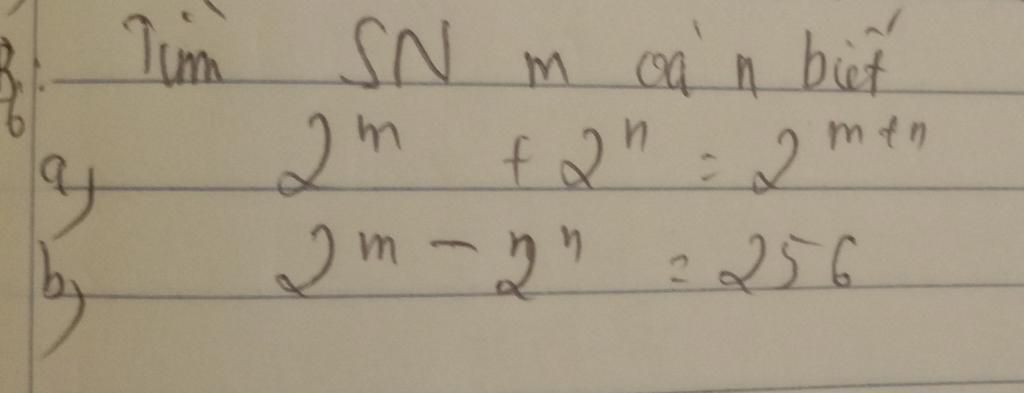 B6: Tìm SN m và n biết
a) 2^m + 2^n = 2^{m+n}
b) 2^m - 2^n = 256